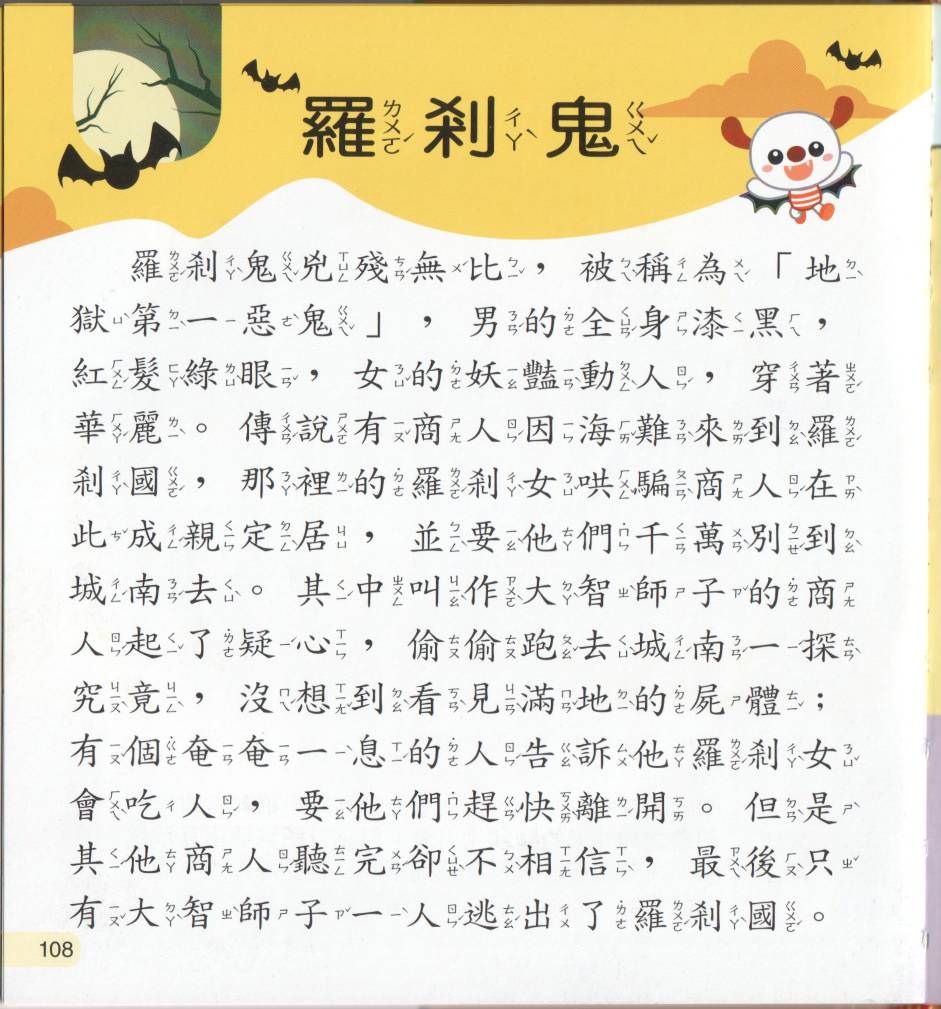 羅剎鬼
羅剎鬼兇殘無比，被稱為「地
獄第一惡鬼」，男的全身漆黑，
紅髮綠眼，女的妖豔動人，穿著
華麗。傳說有商人因海難來到羅
剎國，那裡的羅剎女哄騙商人在
此成親定居，並要他們千萬別到
城南去。其中叫作大智師子的商
人起了疑心，偷偷跑去城南一探
究竟，沒想到看見滿地的屍體；
有個奄奄一息的人告訴他羅剎女
會吃人，要他們趕快離開。但是
其他商人聽完卻不相信，最後只
有大智師子一人逃出了羅剎國。
108